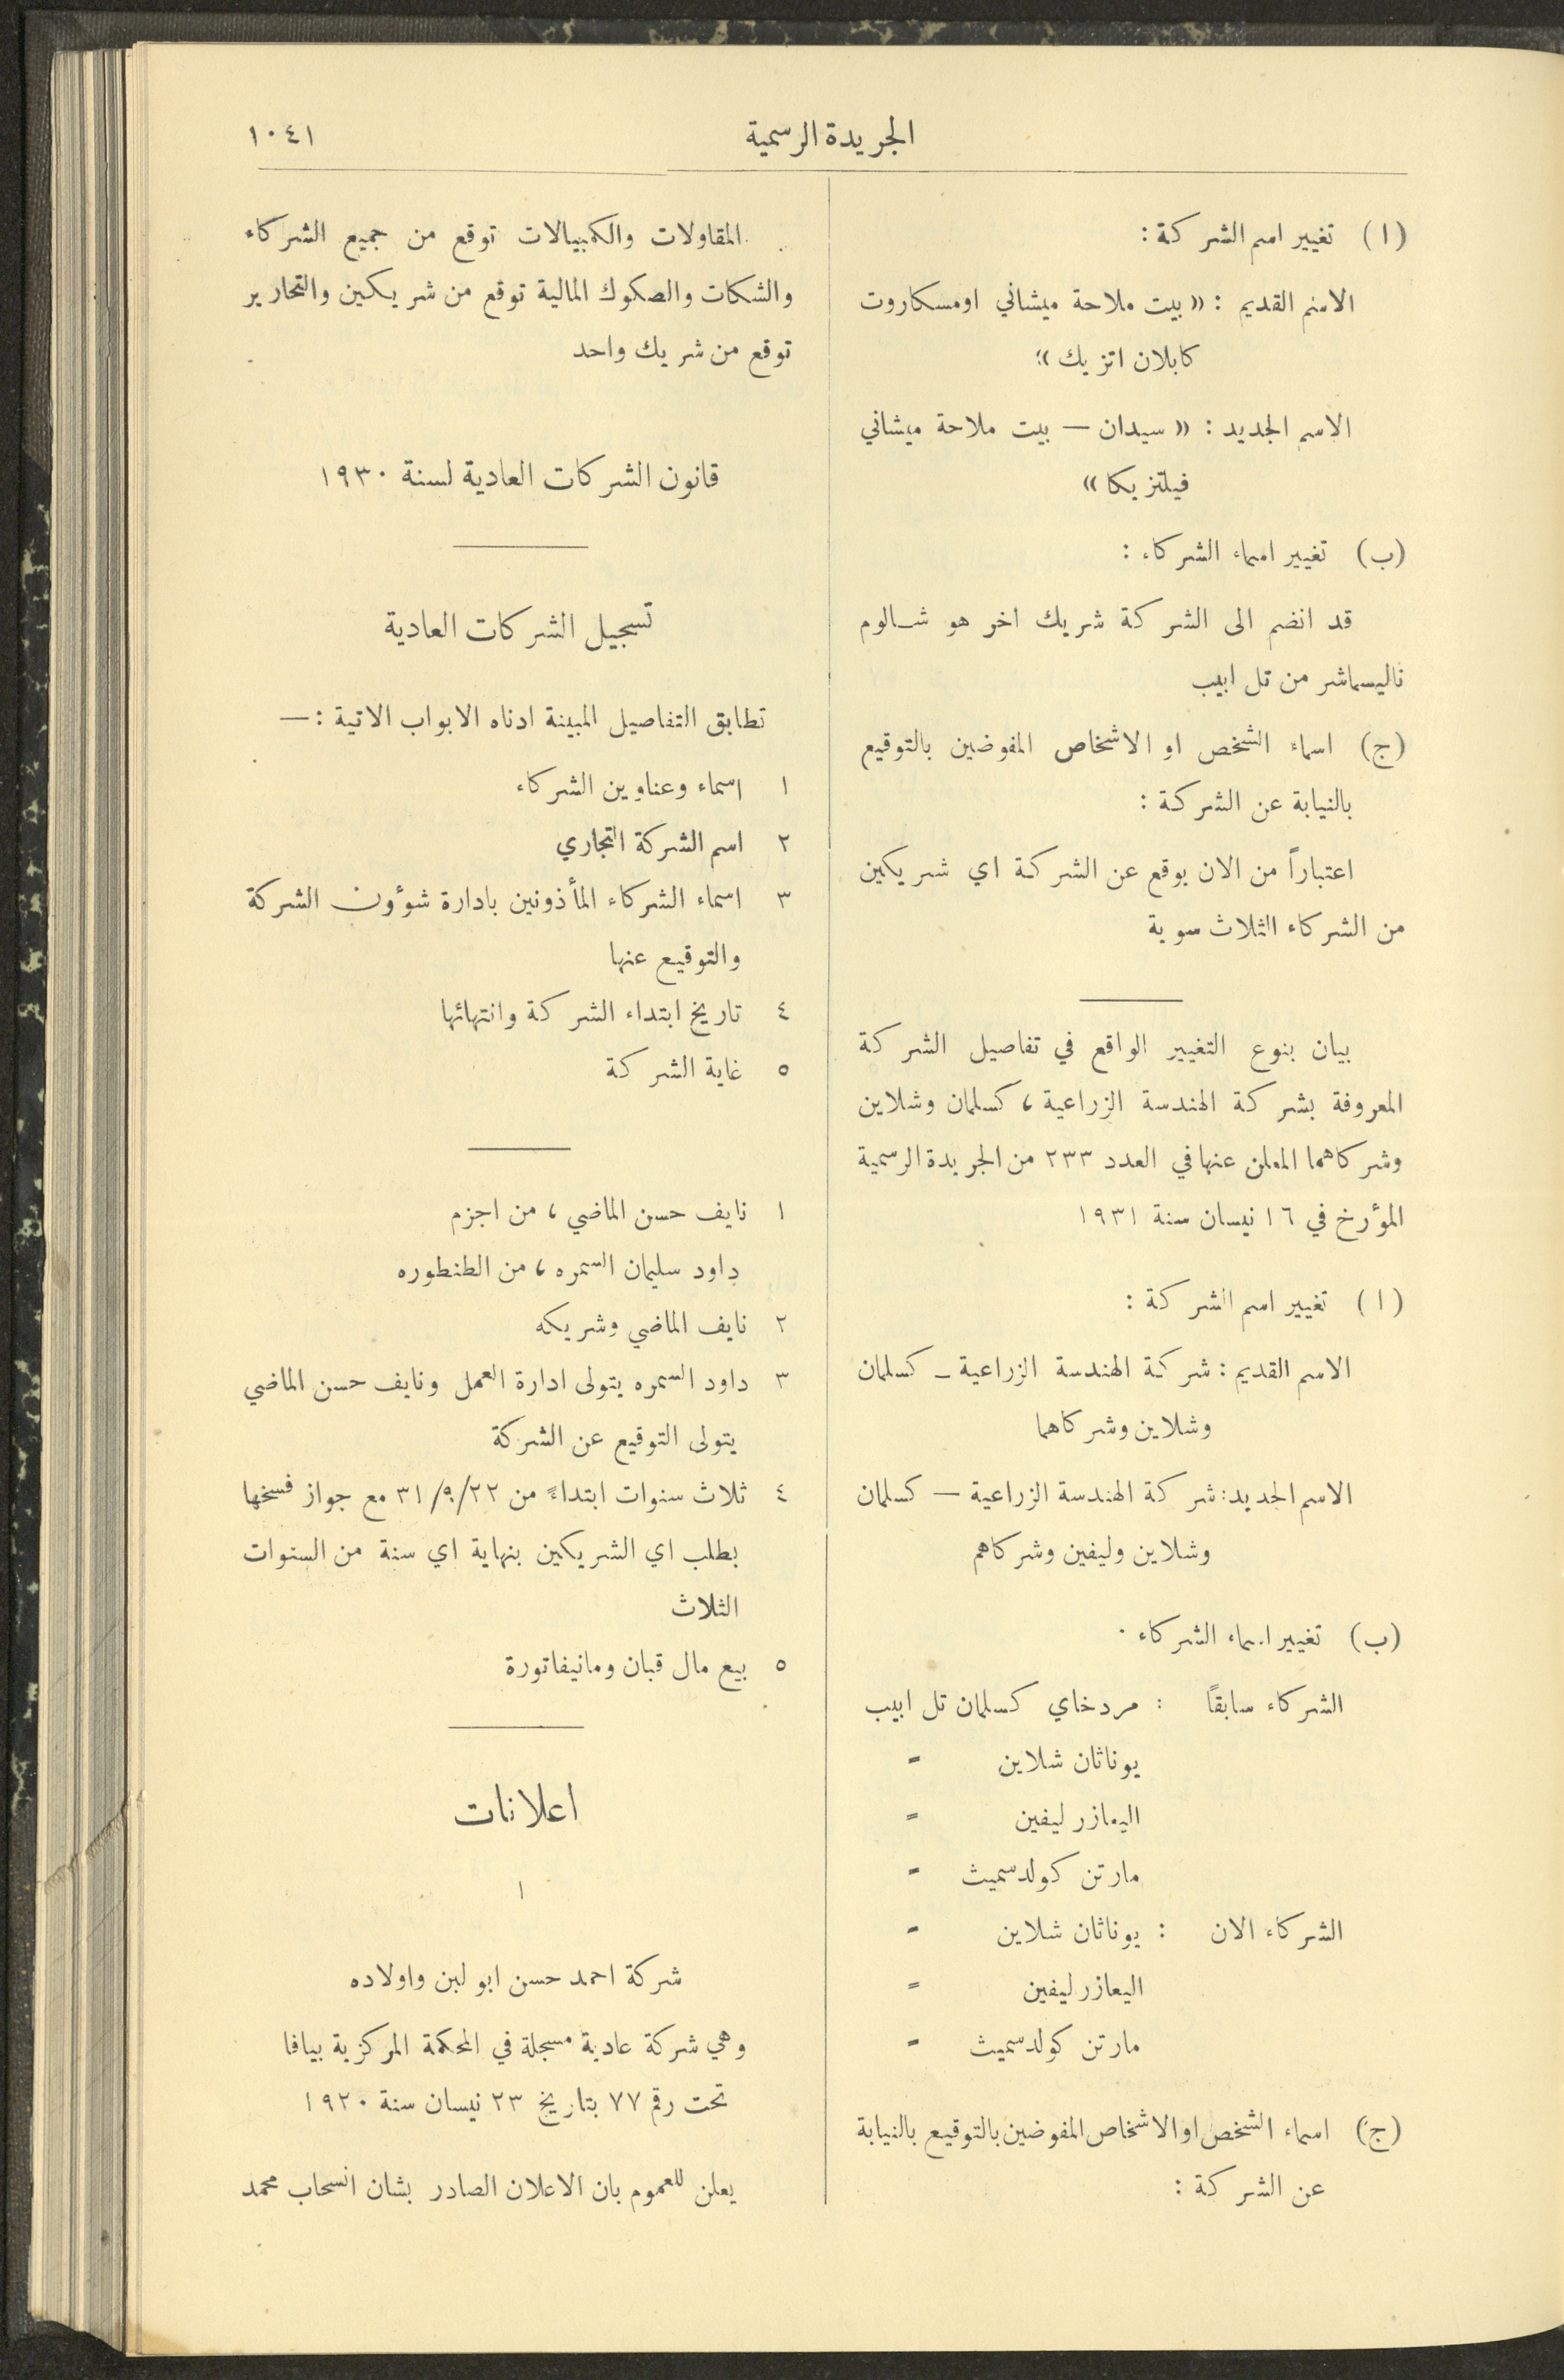 الجريدة الرسمية
١٠٤١
(ا) تغيير اسم الشركة :
الاسم القديم : « بيت ملاحة ميشاني اومسكاروت
كابلان اتزيك »؛
الاسم الجديد : « سيدان — بيت ملاحة ميشاني
فيلتزيكا »
(ب) تغيير اسماء الشركاء :
قد انضم الى الشركة شريك اخر هو شالوم
ناليسماشر من تل ابيب
(ج) اسماء الشخص او الاشخاص المفوضين بالتوقيع
بالنيابة عن الشركة :
اعتباراً من الان يوقع عن الشركة اي شريكين
من الشركاء الثلاث سوية
بيان بنوع التغيير الواقع في تفاصيل الشركة
المعروفة بشركة الهندسة الزراعية ، كسلمان وشلاين
وشركاهما المعلن عنها في العدد ٢٣٣ من الجريدة الرسمية
المؤرخ في ١٦ نيسان سنة ١٩٣١
(ا) تغيير اسم الشركة :
الاسم القديم : شركة الهندسة الزراعية – كسلمان
وشلاين وشركاهما
الاسم الجديد : شركة الهندسة الزراعية — كسلمان
وشلاين وليفين وشركاهم
(ب) تغيير اسماء الشركاء ٠
الشركاء سابقاً : مردخاي كسلمان تل ابيب
يوناثان شلاين =
اليعازر ليفين =
مارتن كولدسميث =
الشركاء الان : يوناثان شلاين =
اليعازر ليفين =
مارتن كولدسميث =
(ج) اسماء الشخص او الاشخاص المفوضين بالتوقيع بالنيابة
عن الشركة :
المقاولات والكمبيالات توقع من جميع الشركاء
والشكات والصكوك المالية توقع من شريكين والتحارير
توقع من شريك واحد
قانون الشركات العادية لسنة ١٩٣٠
تسجيل الشركات العادية
تطابق التفاصيل المبينة ادناه الابواب الاتية : —
١ اسماء وعناوين الشركاء
٢ اسم الشركة التجاري
٣ اسماء الشركاء المأذونين بادارة شوؤن الشركة
والتوقيع عنها
٤ تاريخ ابتداء الشركة وانتهائها
٥ غاية الشركة
١ نايف حسن الماضي ، من اجزم
داود سليمان السمره ، من الطنطوره
٢ نايف الماضي وشريكه
٣ داود السمره يتولى ادارة العمل ونايف حسن الماضي
يتولى التوقيع عن الشركة
٤ ثلاث سنوات ابتداءً من ٣١/٩/٢٢ مع جواز فسخها
بطلب اي الشريكين بنهاية اي سنة من السنوات
الثلاث
٥ بيع مال قبان ومانيفاتورة
اعلانات
١
شركة احمد حسن ابو لبن واولاده
وهي شركة عادية مسجلة في المحكمة المركزية بيافا
تحت رقم ٧٧ بتاريخ ٢٣ نيسان سنة ١٩٢٠
يعلن للعموم بان الاعلان الصادر بشان انسحاب محمد